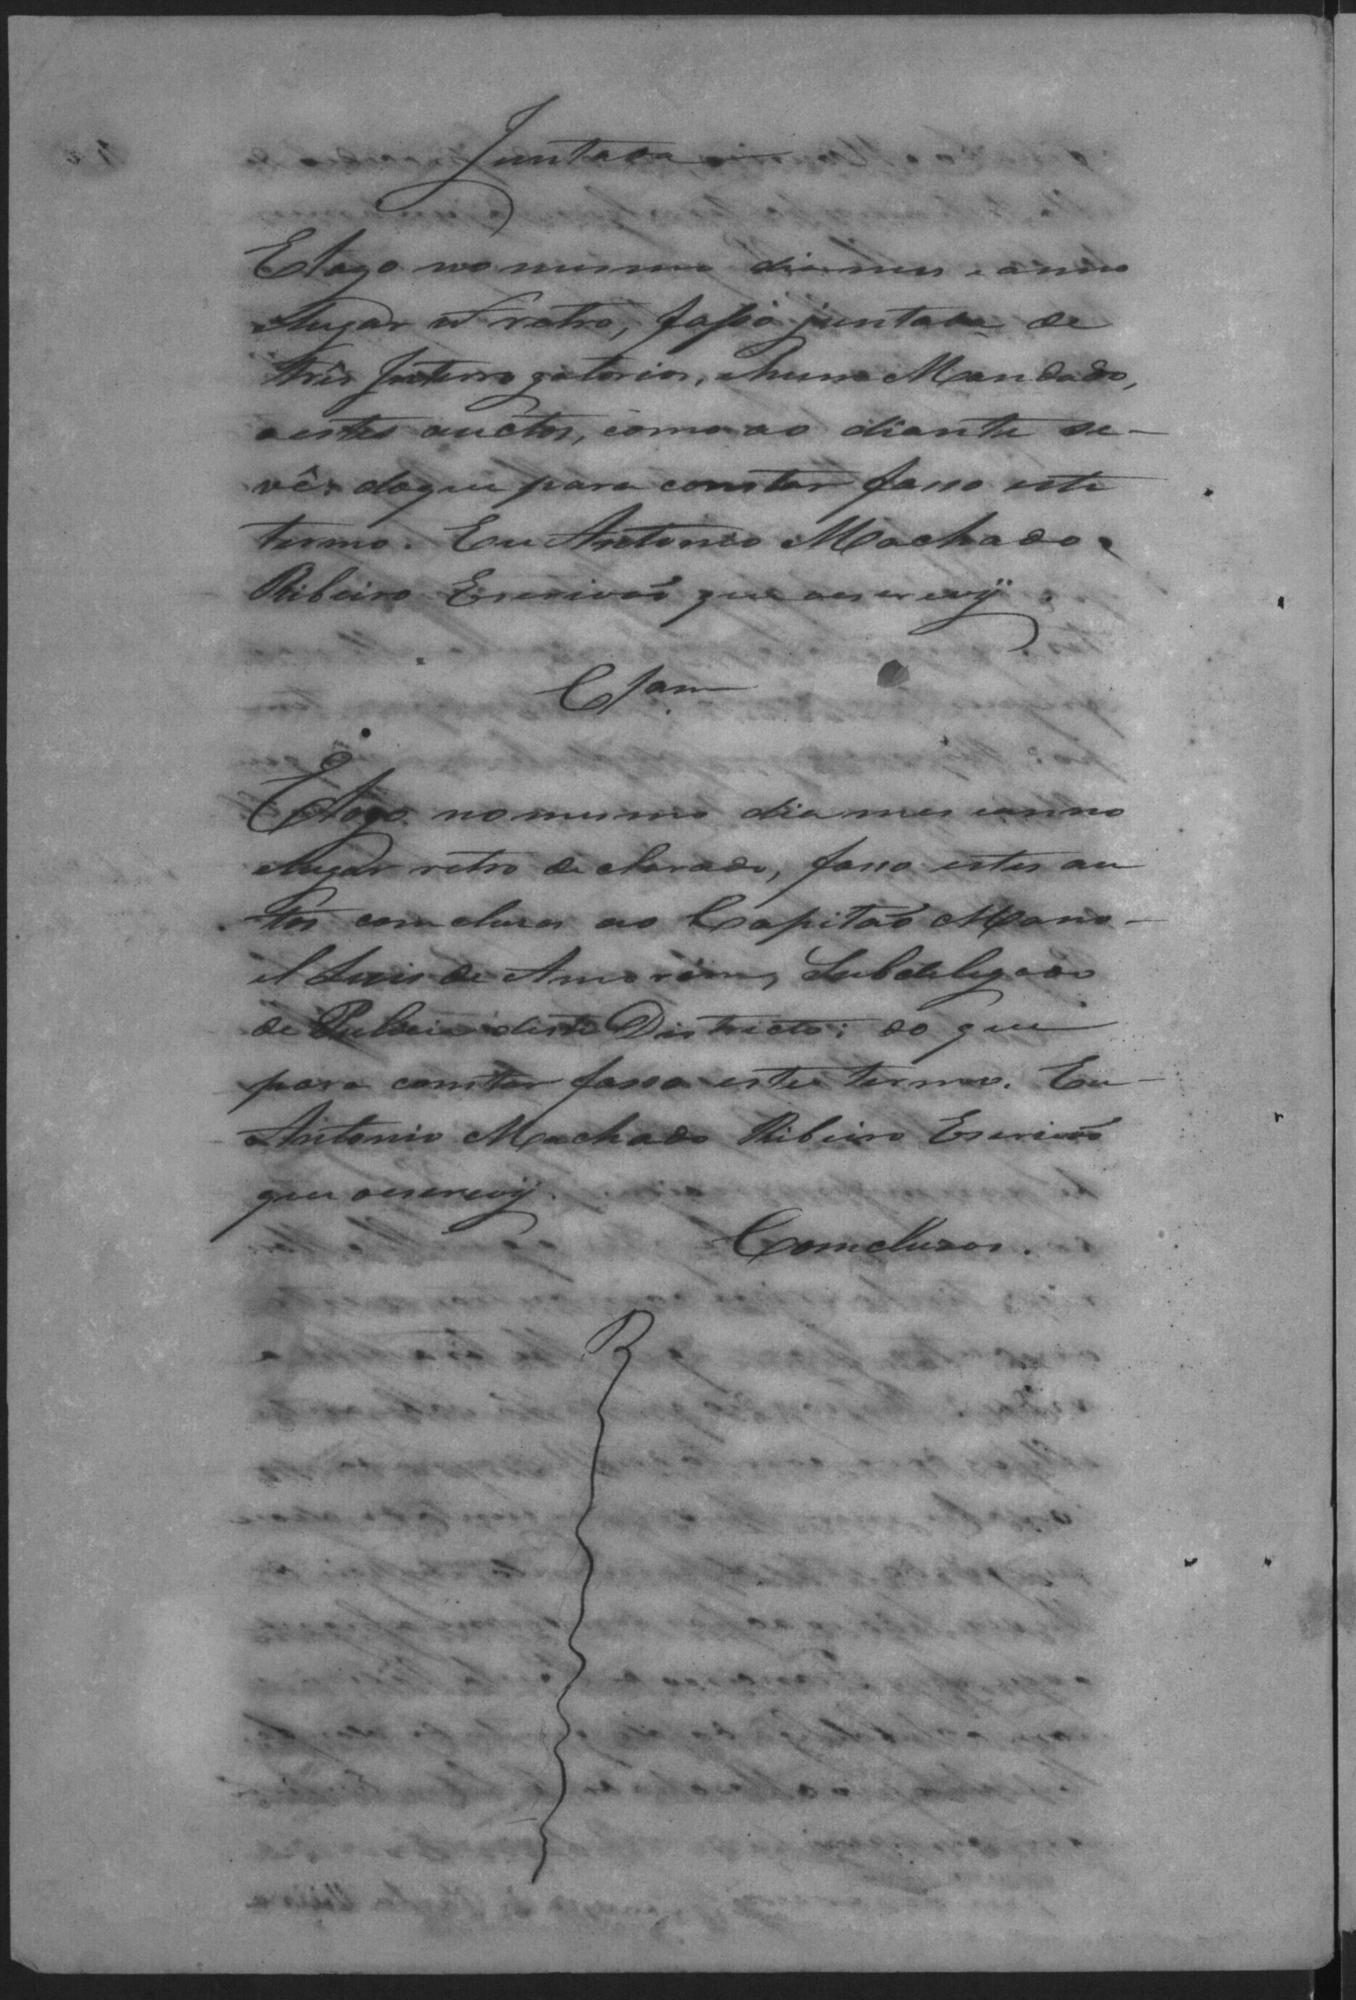 Juntada
E logo no mesmo dia mes e anno
e lugar retro, fasso juntada de
três Interrogatorios, e huma Mandado,
a estes auctos, como ao diante se-
vê: do que para constar fasso este
termo. Eu Antonio Machado
Ribeiro Escrivão que o escrevy.
Clsam
E logo no mesmo dia mes e anno
e lugar retro declarado, fasso estes au
tos comcluzos ao Capitão Mano-
el Luis de Amorim, Subdelegado
de Pulicia deste Districto; do que
para constar fasso este termo. Eu
Antonio Machado Ribeiro Escrivão
que o escrevy.
Comcluzos.